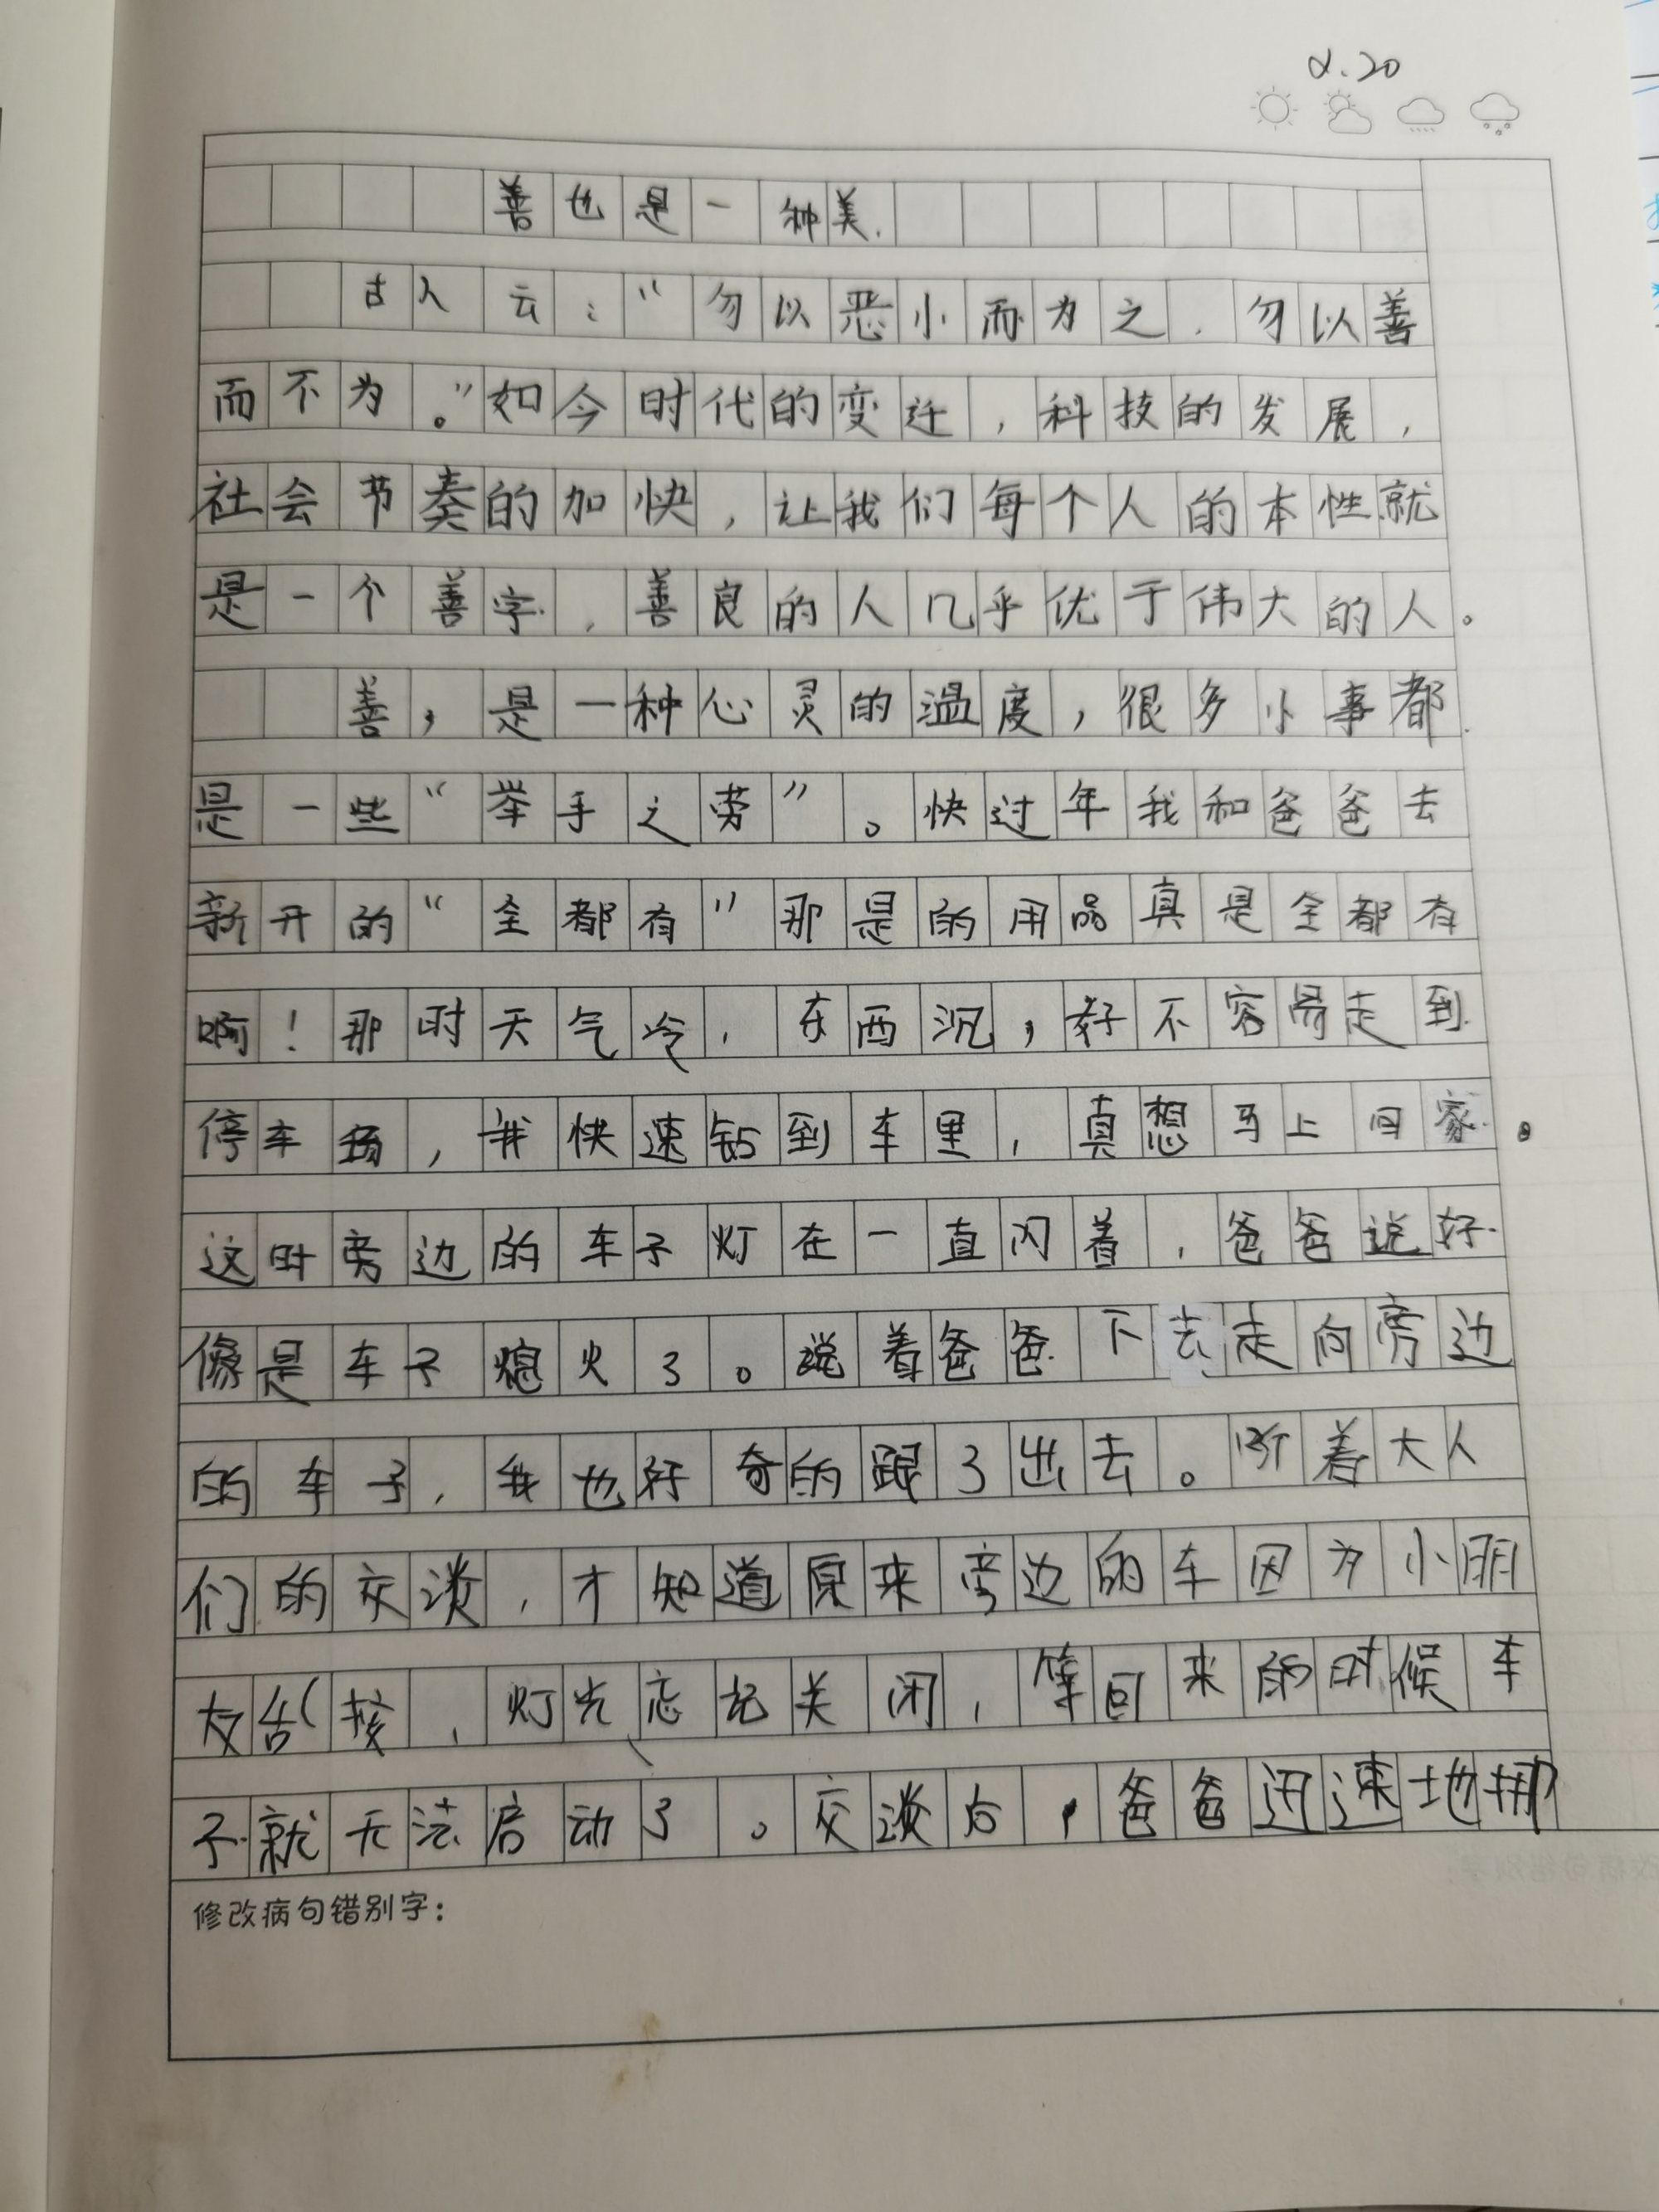 2.20
善也是一种美.
古人云:“勿以恶小而为之.勿以善
而不为。”如今时代的变迁,科技的发展,
社会节奏的加快,让我们每个人的本性就
是一个善字,善良的人几乎优于伟大的人。
善,是一种心灵的温度,很多小事都
是一些“举手之劳”。快过年我和爸爸去
新开的“全都有”那是的用品真是全都有
啊!那时天气冷,东西沉,好不容易走到
停车场,我快速钻到车里,真想马上回家。
这时旁边的车子灯在一直闪着,爸爸说好
像是车子熄火了。说着爸爸下去走向旁边
的车子,我也好奇的跟了出去。听着大人
们的交谈,才知道原来旁边的车因为小朋
友,灯光忘记关闭,等回来的时候车
子就无法启动了。交谈后,爸爸迅速地
修改病句错别字: